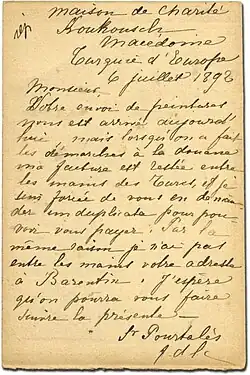 maison de Charité
rép
Koukousch
Macedoine
Turquie d'Europe
6 juillet 1892
Monsieur
Votre envoi de peintures
nous est arrivé aujourd
hui mais lorsqu'on a fait
les démarches à la douane
ma facture est restée entre
les mains des Turcs, et je
suis forcée de vous en deman
der un duplicata pour pou
voir vous payer. Par la
même raison je n'ai pas
entre les mains votre adresse
à Barentin. J'espère
qu'on pourra vous faire
suivre la présente
Sr Pourtalès